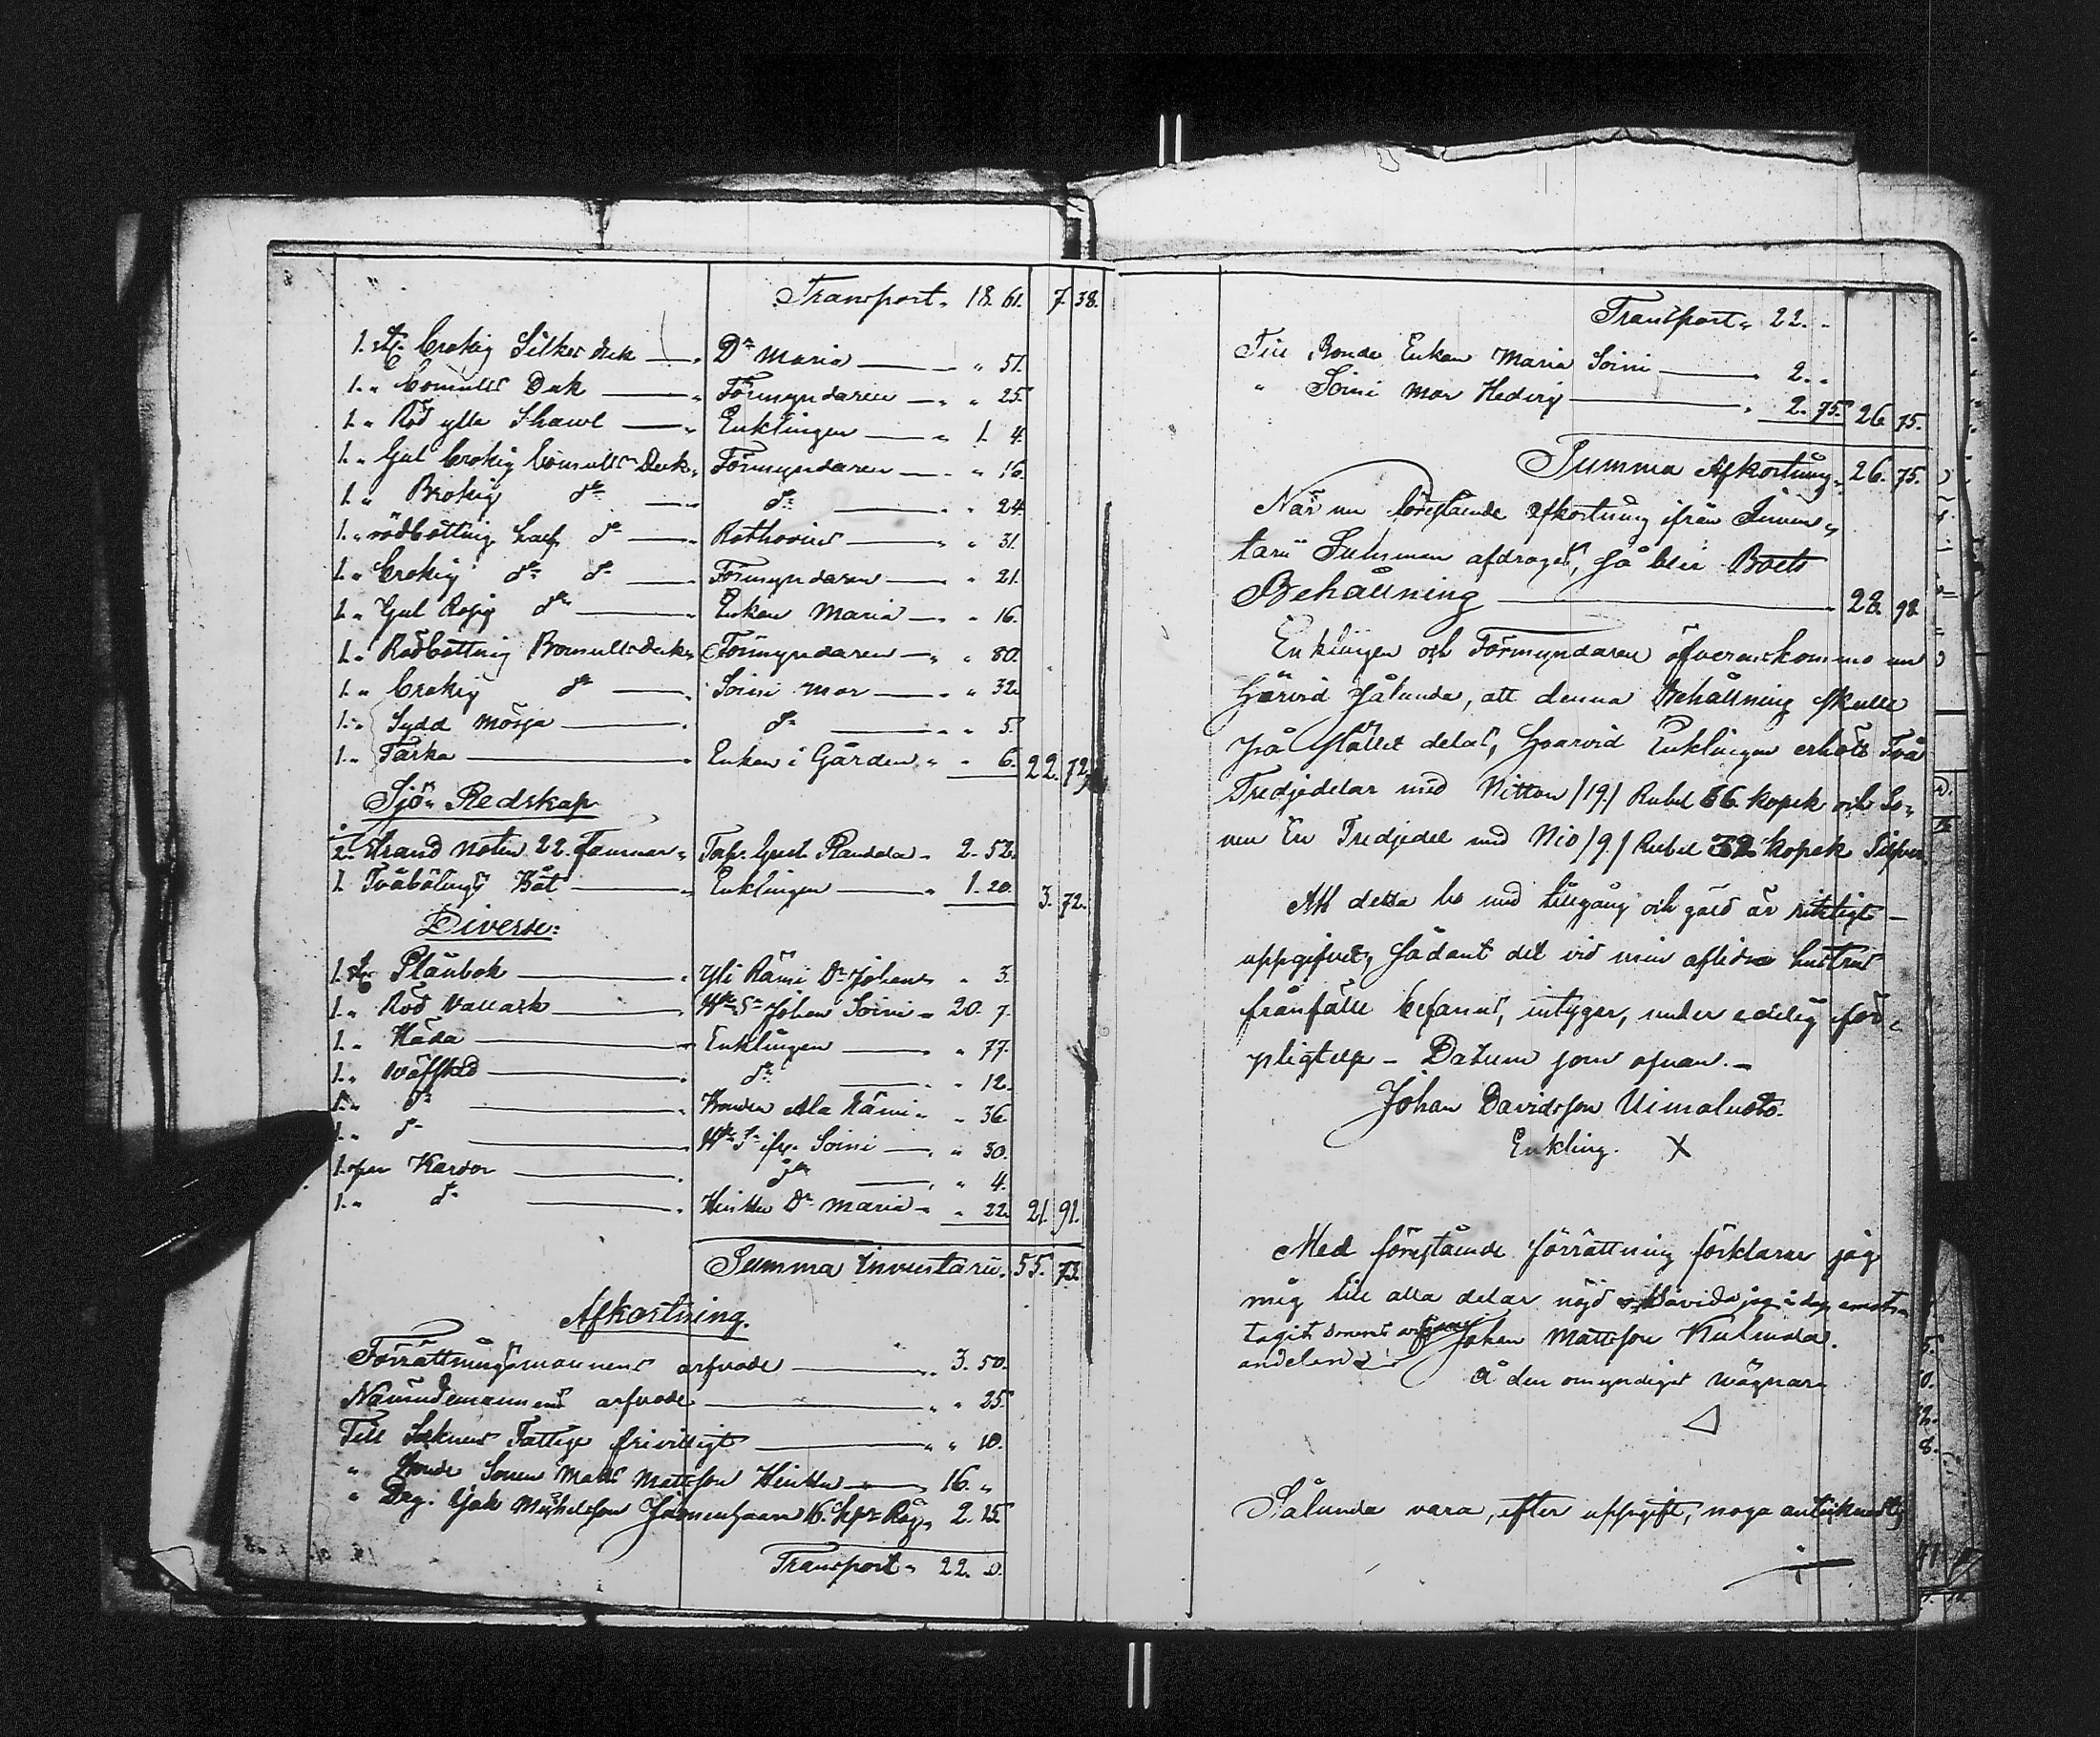 Transport " 18. 61. 7. 38.
1. st. brokig Silkes duk — Dr Maria — " 51.
1. " bomulls Duk — Förmyndaren — " 25.
1. " Röd ylle Shawl — Enklingen — " 1. 4.
1. " Gul brokig bomulls Duk " Förmyndaren — " 16.
1. " Brokig do — do — " 24.
1. " rödbottnig half do — Rothovius — " 31.
1. " brokig do do — Förmyndaren — " 21.
1. " Gul do — Enkan Maria — " 16.
1. " Rödbottnig Bomullsduk " Förmyndaren — " 80.
1. " brokig do — Soini mor — " 32.
1. " Sydd mössa — do — " 5.
1. " Taska — Enkan i Gården " " 6. 22. 72.
Sjö-Redskap
1/2. Strand noten 22. famnar " Randala " 2. 52.
1. Tvåbölings Båt — Enklingen — " 1. 20. 3. 72.
Diverse:
1. st. Plånbok — Yli Rämi Dr Johans " 3.
1. " Röd Vallack — Johan Soini " 20. 7.
1. " — Enklingen — " 77.
1. " Wäfsked — do — " 12.
1. " do — Bonden Ala Rämi " " 36.
1. " do — Soini — " 30.
1. par Kardor — do — " 4.
1. " do — Hinttu Dr Maria " " 22. 21. 91.
Summa Inventarii. 55. 73.
Afkortning.
Förrättningsmannens arfvode — " 3. 50.
Nämndemannens arfvode — " " 25.
Till Soknens Fattige frivilligt — " " 10.
" Bonde Sonen Matts Mattsson Hinttu — 16. "
" Drg. Isak Michelsson 16. Råg " 2. 15.
Transport " 22. 0.
Transport " 22. "
Till Bonde Enkan Maria Soini — 2. "
" Soini Mor Hedvig — " 2. 75. 26. 75.
Summa Afkortning " 26. 75.
När nu förestående afkortning ifrån Inven-
tarii Summan afdrages, så blir Boets
Behållning — 28. 98.
Enklingen och Förmyndaren öfverenskommo nu
härvid sålunda, att denna Behållning skulle
på stället delas, hvarvid Enklingen erhölt Två
Tredjedelar med Nitton /19./ Rubel 66. kopek och So-
nen En Tredjedel med Nio /9./ Rubel 32 kopek Silfver.
Att detta bo med tillgång och gäld är riktigt
uppgifvet, sådant det vid min aflidna hustrus
frånfälle befanns, intygar, under edelig för-
pligtelse — Datum som ofvan. —
Johan Davidsson Uimaluoto.
Enkling. X
Med förestående förrättning förklarar jag
mig till alla delar nöjd hvarvid jag i dag emot-
tagit sonens arfs Johan Mattsson Kulmala.
andelen
Å den omyndiges wägnar.
Sålunda vara, efter uppgift, noga antecknadt,